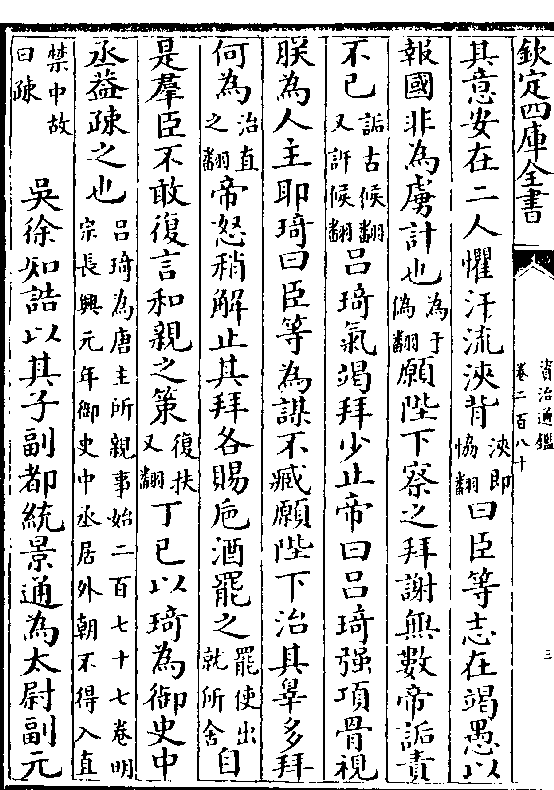 欽定四庫全書
資治通鑑
卷二百八十
三
其意安在二人懼汗流浹背浹即協翻曰臣等志在竭愚以
報國非為虜計也為于偽翻願陛下察之拜謝無數帝詬責
不已詬古候翻又許候翻呂琦氣竭拜少止帝曰呂琦强項骨視
朕為人主耶琦曰臣等為謀不臧願陛下治其辠多拜
何為治直之翻帝怒稍解止其拜各賜巵酒罷之罷使出就所舍自
是羣臣不敢復言和親之策復扶又翻丁巳以琦為御史中
丞益疎之也呂琦為唐主所親事始二百七十七卷明宗長興元年御史中丞居外朝不得入直
禁中故曰疎吳徐知誥以其子副都統景通為太尉副元